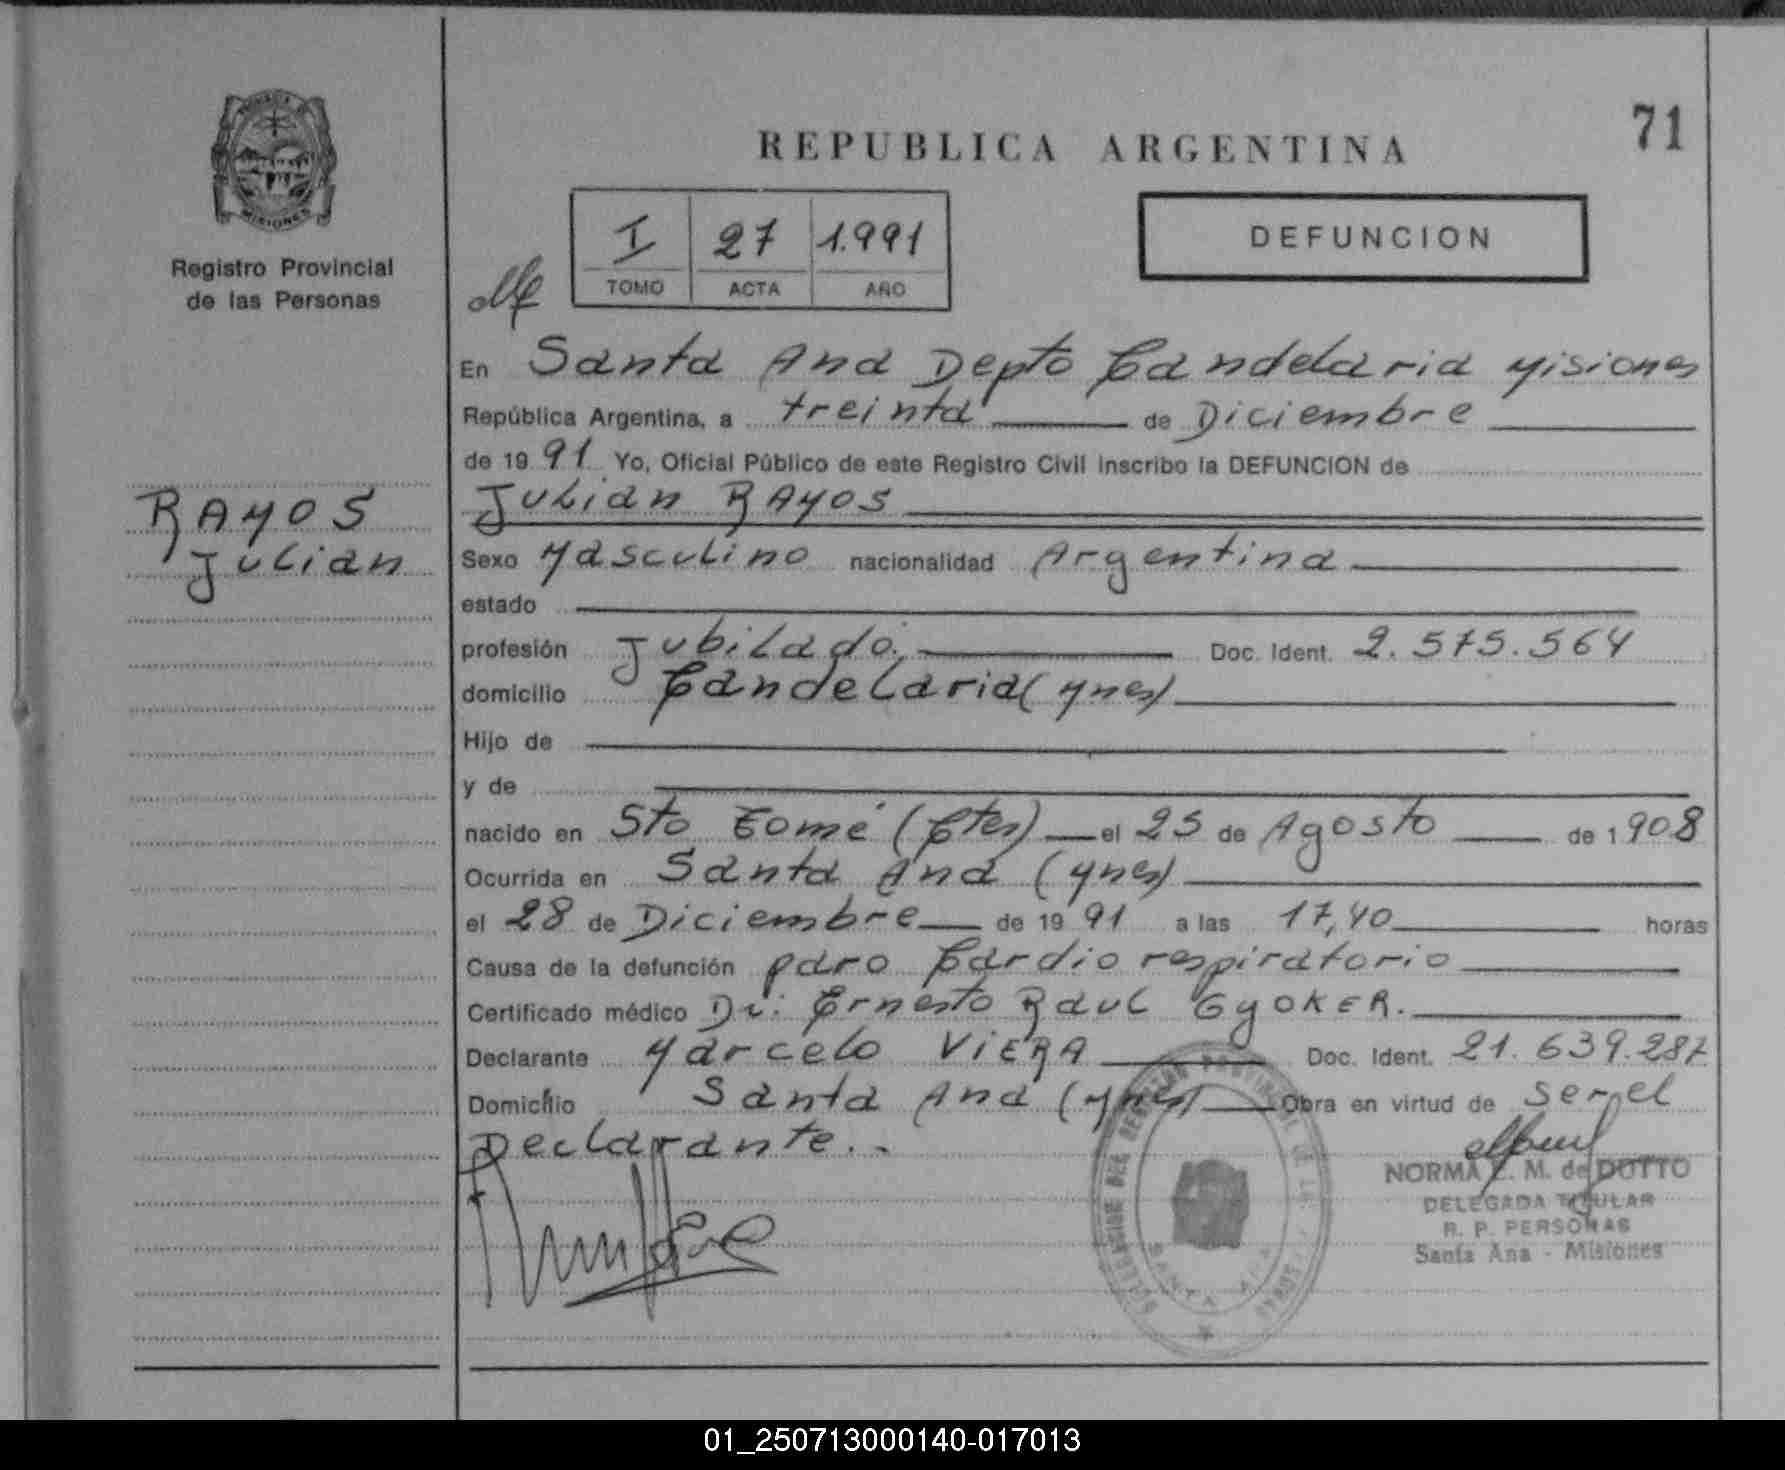 71
REPUBLICA ARGENTINA
PROVINCIA D
MISIONES
Registro Provincial
de las Personas
I 27 1.991
TOMO ACTA AÑO
DEFUNCION
En Santa Ana Depto Candelaria Misiones
República Argentina, a treinta de Diciembre
de 19 91 Yo, Oficial Público de este Registro Civil inscribo la DEFUNCION de
RAYOS
Julian
Julian RAYOS
Sexo Masculino nacionalidad Argentina
estado
profesión Jubilado. Doc. Ident. 2.575.564
domicilio Candelaria (Mnes)
Hijo de
y de
nacido en Sto Tomé (Ctes) el 25 de Agosto de 1 908
Ocurrida en Santa Ana (Mnes)
el 28 de Diciembre de 19 91 a las 17,40 horas
Causa de la defunción paro Cardio respiratorio
Certificado médico Dr: Ernesto Raul GyOKER.
Declarante Marcelo VIERA Doc. Ident. 21.639.287
Domicilio Santa Ana (Mnes) Obra en virtud de ser el
Declarante..
NORMA E. M. de DUTTO
DELEGADA TITULAR
R. P. PERSONAS
Santa Ana - Misiones
SANTA ANA
01_250713000140-017013